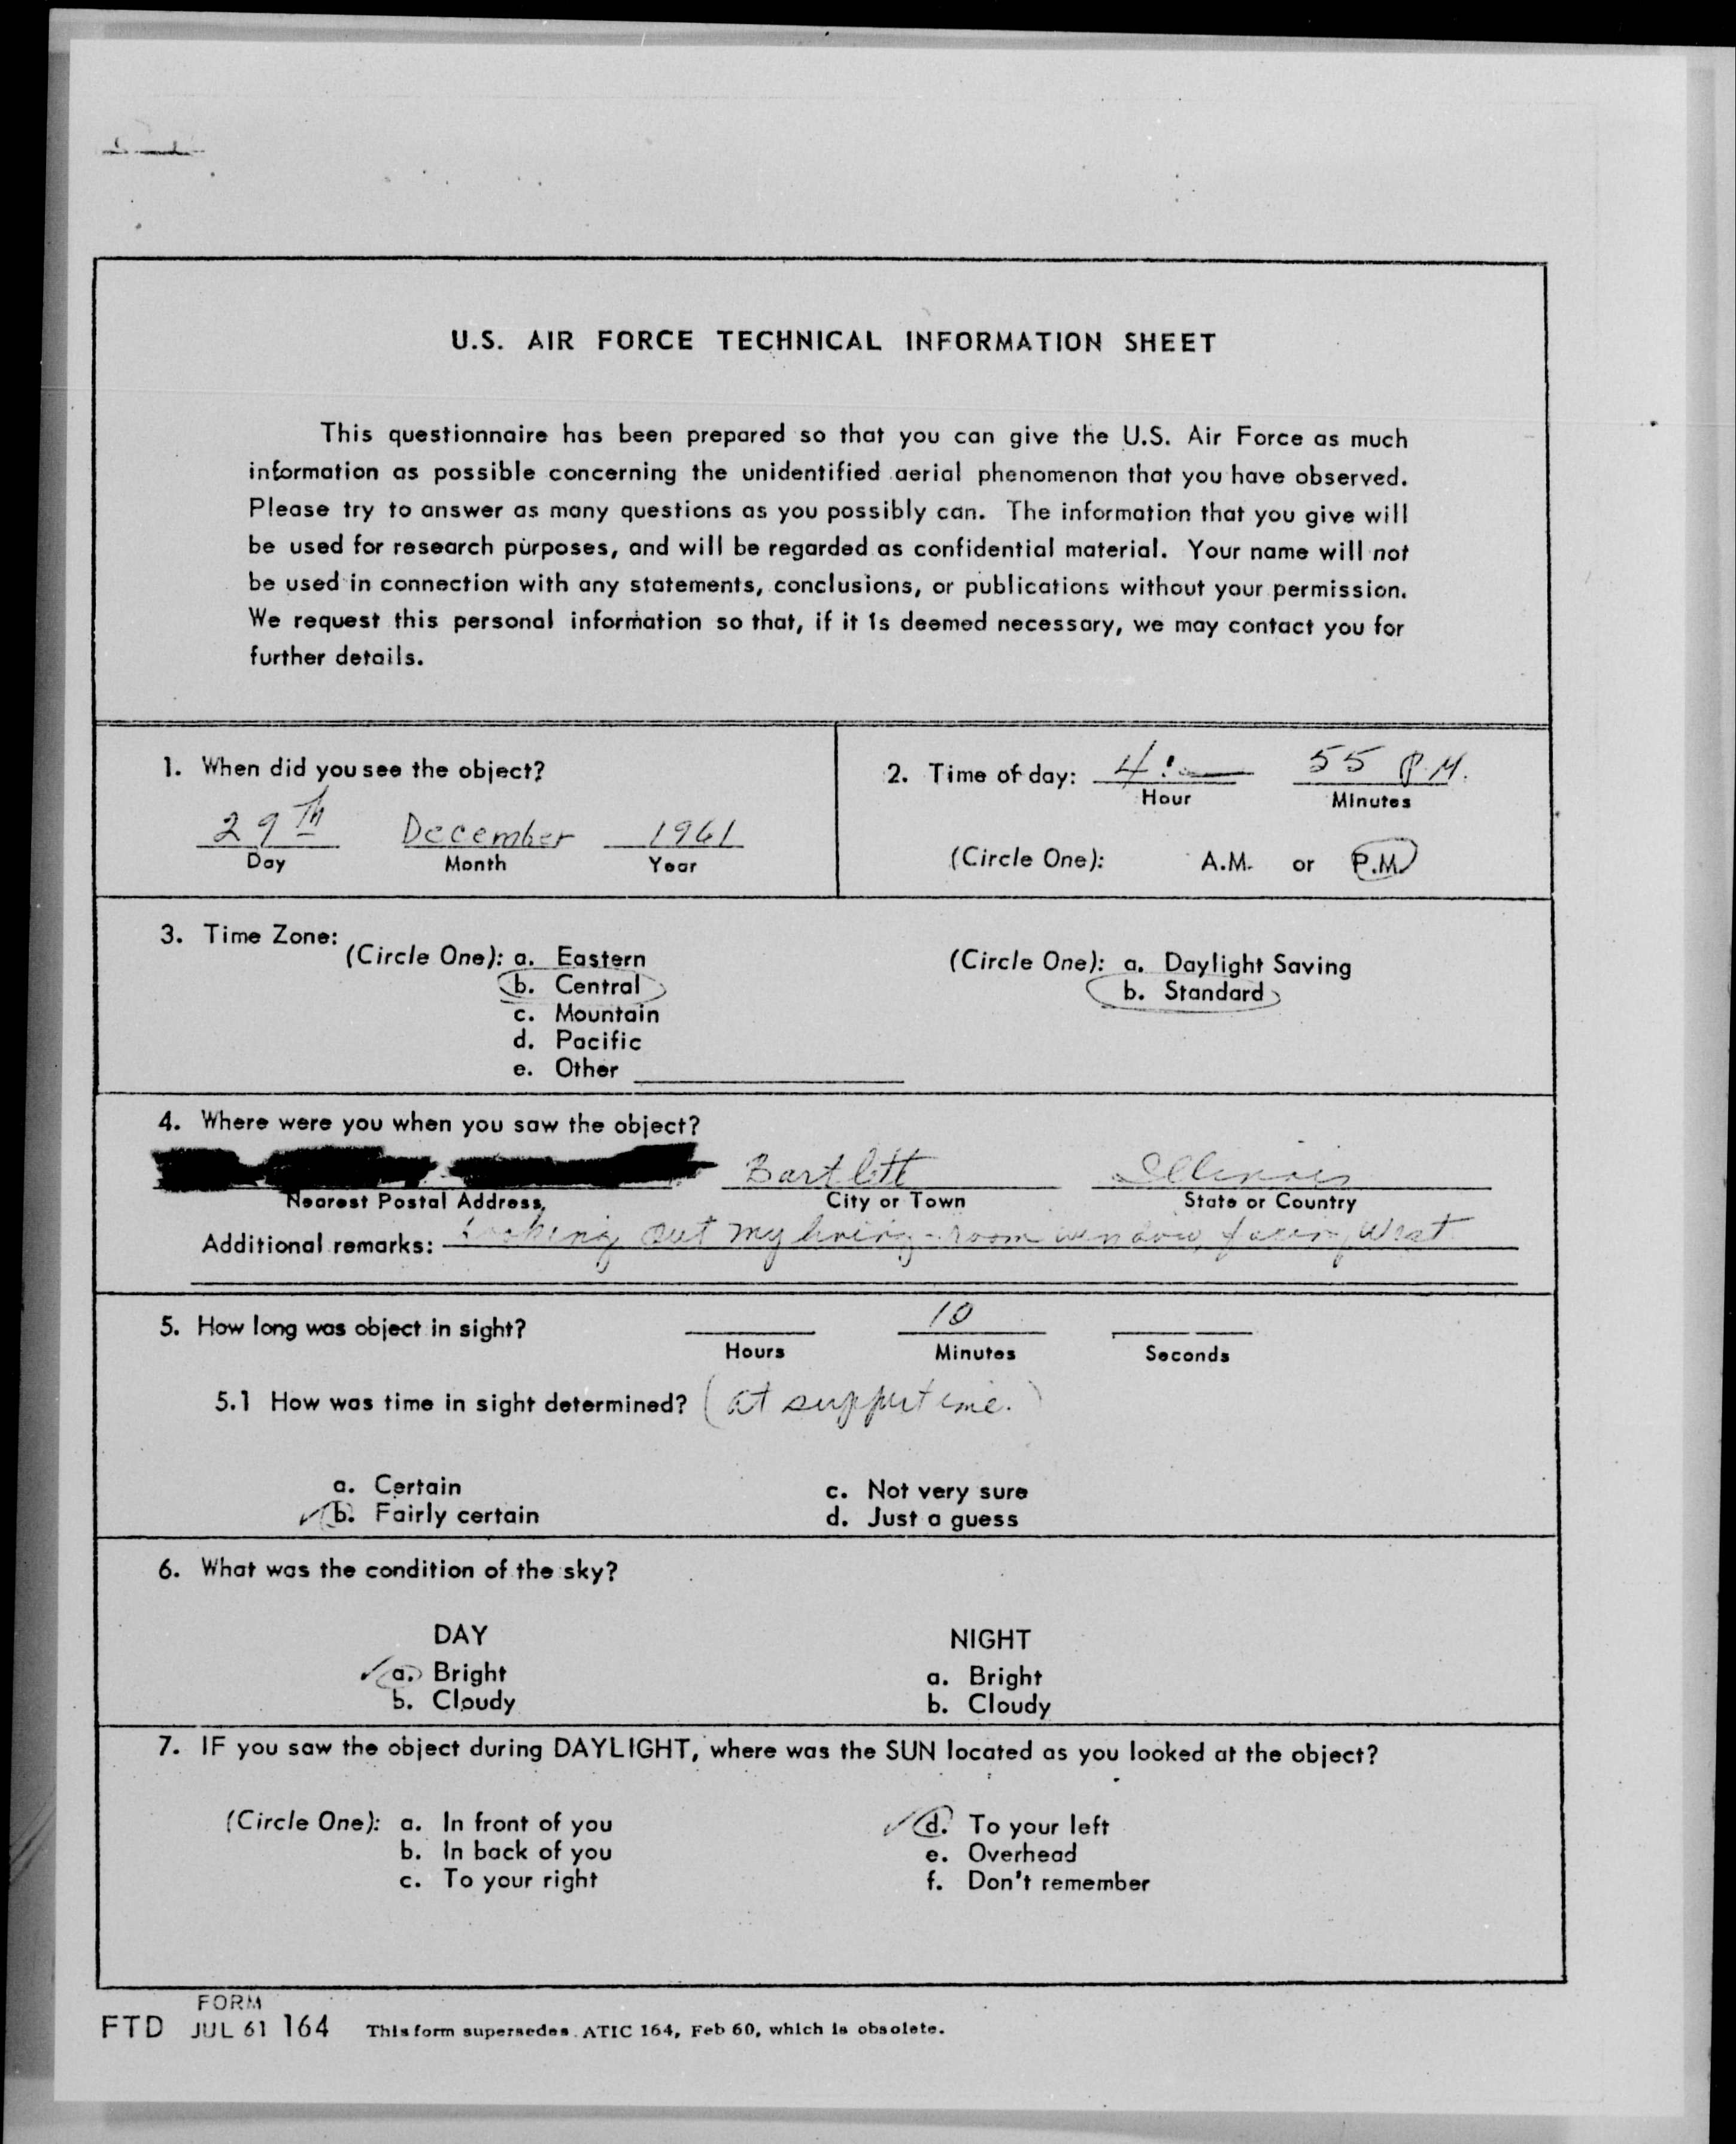 U.S. AIR FORCE TECHNICAL INFORMATION SHEET
This questionnaire has been prepared so that you can give the U.S. Air Force as much
information as possible concerning the unidentified aerial phenomenon that you have observed.
Please try to answer as many questions as you possibly can. The information that you give will
be used for research purposes, and will be regarded as confidential material. Your name will not
be used in connection with any statements, conclusions, or publications without your permission.
We request this personal information so that, if it is deemed necessary, we may contact you for
further details.
1. When did you see the object?
29th December 1961
Day Month Year
2. Time of day: 4: 55 P.M.
Hour Minutes
(Circle One): A.M. or P.M.
3. Time Zone:
(Circle One): a. Eastern
b. Central
c. Mountain
d. Pacific
e. Other
(Circle One): a. Daylight Saving
b. Standard
4. Where were you when you saw the object?
Bartlett Illinois
Nearest Postal Address, City or Town State or Country
Additional remarks: Looking out my living-room window, facing West
5. How long was object in sight? 10
Hours Minutes Seconds
5.1 How was time in sight determined? (at suppertime.)
a. Certain c. Not very sure
b. Fairly certain d. Just a guess
6. What was the condition of the sky?
DAY NIGHT
a. Bright a. Bright
b. Cloudy b. Cloudy
7. IF you saw the object during DAYLIGHT, where was the SUN located as you looked at the object?
(Circle One): a. In front of you d. To your left
b. In back of you e. Overhead
c. To your right f. Don't remember
FORM
FTD JUL 61 164 This form supersedes ATIC 164, Feb 60, which is obsolete.